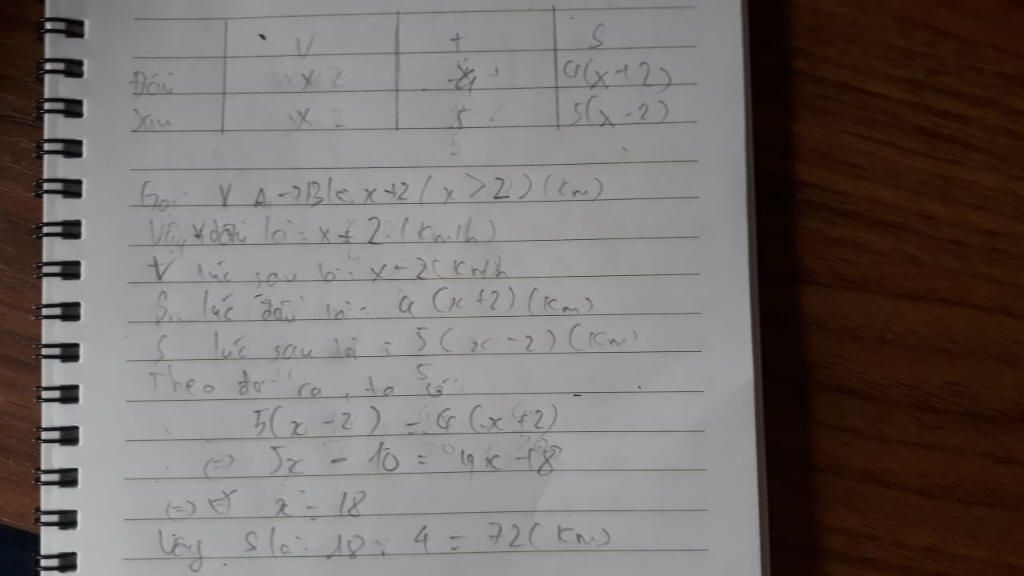 V t S
Đầu x 4 4(x+2)
Xuu x 5 5(x-2)
5
Gọi V A→B là x+2 (x > 2) (Km)
Vậy V đầu là: x + 2 (Km/h)
V lúc sau là: x - 2 (Km/h
S lúc đầu là = 4 (x+2) (Km)
S lúc sau là = 5 (x - 2) (Km)
Theo đề ra, ta có:
5(x - 2) = 4 (x+2)
(=) 5x - 10 = 4x + 8
(=) x = 18
Vậy S là: 18 . 4 = 72 (Km)